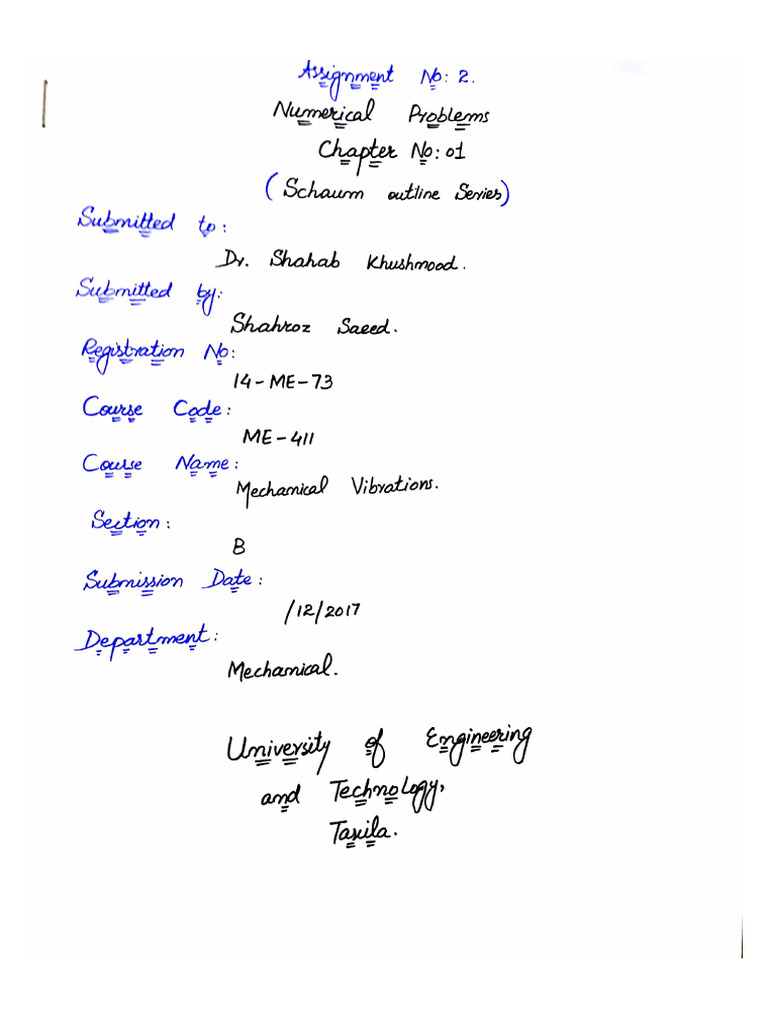 Assignment No: 2.
Numerical Problems
Chapter No: 01
(Schaum outline Series)
Submitted to:
Dr. Shahab Khushmood.
Submitted by:
Shahroz Saeed.
Registration No:
14-ME-73
Course Code:
ME-411
Course Name:
Mechanical Vibrations.
Section:
B
Submission Date:
/12/2017
Department:
Mechanical.
University of Engineering
and Technology,
Taxila.